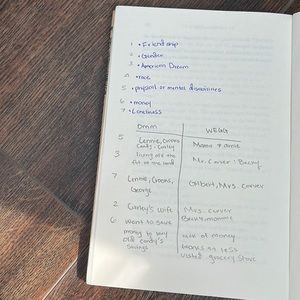 1 • Friendship
2 • Gender
3 • American Dream
4 • race
5 • physical or mental disabilities
6 • money
7 • Loneliness
OMM WEGG
5 Lennie, Crooks Mama & Arnie
Candy, Curley
3 living off the Mr. Carver, Becky
fat of the land
7 Lennie, Crooks, Gilbert, Mrs. Carver
George
2 Curley's wife Mrs. Carver
6 want to save Becky, momma
money to buy lack of money
Candy's
savings less
grocery store